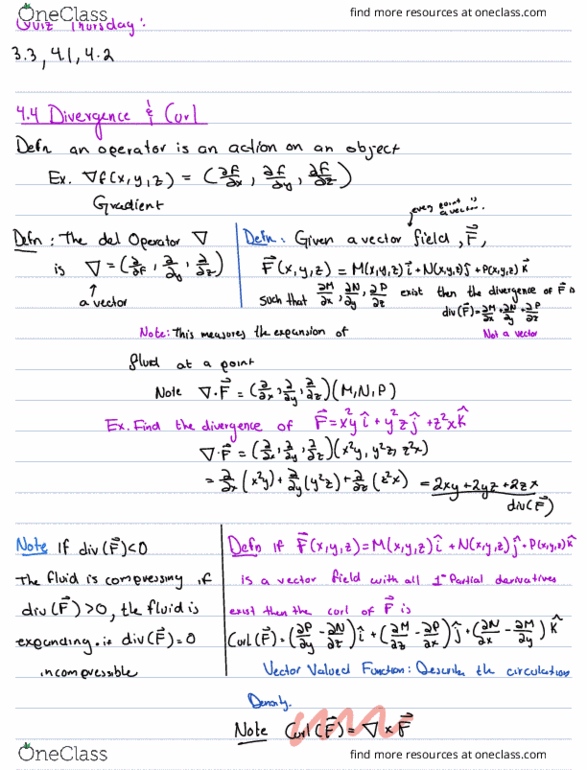 OneClass
find more resources at oneclass.com
Quiz Thursday:
3.3, 4.1, 4.2
4.4 Divergence & Curl
Defn an operator is an action on an object
Ex. ∇f(x,y,z) = (∂f/∂x, ∂f/∂y, ∂f/∂z)
Gradient
every point is a vector.
Defn: The del Operator ∇
is ∇ = (∂/∂f, ∂/∂y, ∂/∂z)
a vector
Defn: Given a vector field, F⃗,
F⃗(x,y,z) = M(x,y,z)î + N(x,y,z)ĵ + P(x,y,z)k̂
such that ∂M/∂x, ∂N/∂y, ∂P/∂z exist then the divergence of F⃗ is
div(F⃗) = ∂M/∂x + ∂N/∂y + ∂P/∂z
Not a vector
Note: This measures the expansion of
fluid at a point
Note ∇·F⃗ = (∂/∂x, ∂/∂y, ∂/∂z)(M,N,P)
Ex. Find the divergence of F⃗ = x²yî + y²zĵ + z²xk̂
∇·F⃗ = (∂/∂x, ∂/∂y, ∂/∂z)(x²y, y²z, z²x)
= ∂/∂x(x²y) + ∂/∂y(y²z) + ∂/∂z(z²x) = 2xy + 2yz + 2zx
div(F⃗)
Note If div(F⃗)<0
The fluid is compressing if
div(F⃗)>0, the fluid is
expanding. is div(F⃗)=0
incompressible
Defn if F⃗(x,y,z) = M(x,y,z)î + N(x,y,z)ĵ + P(x,y,z)k̂
is a vector field with all 1st Partial derivatives
exist then the curl of F⃗ is
Curl(F⃗) = (∂P/∂y - ∂N/∂z)î + (∂M/∂z - ∂P/∂x)ĵ + (∂N/∂x - ∂M/∂y)k̂
Vector Valued Function: Describe the circulation
Density.
Note Curl(F⃗) = ∇ × F⃗
OneClass
find more resources at oneclass.com